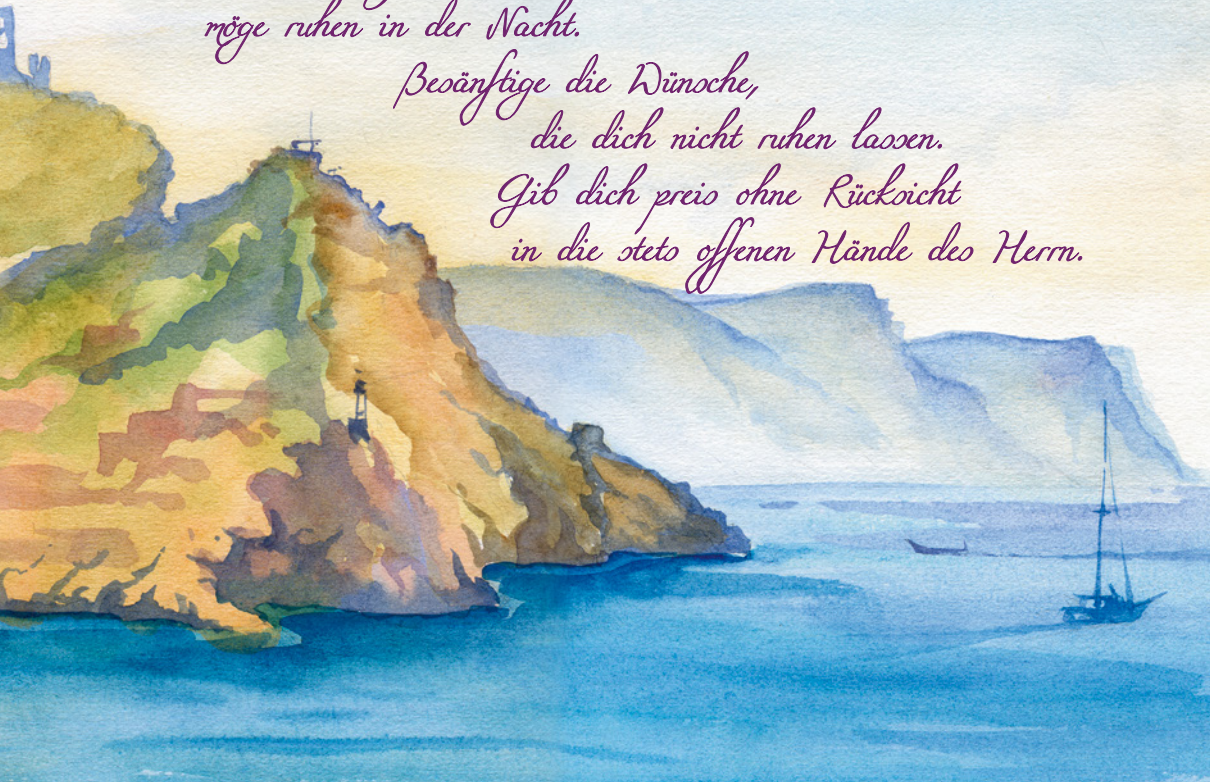 möge ruhen in der Nacht.
Besänftige die Wünsche,
die dich nicht ruhen lassen.
Gib dich preis ohne Rücksicht
in die stets offenen Hände des Herrn.